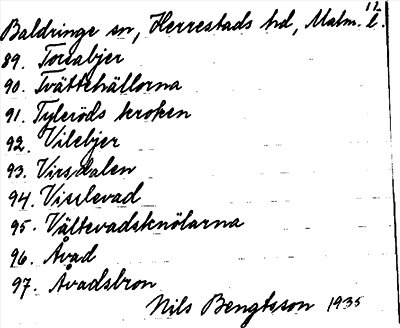 12
Baldringe sn, Herrestads hd, Malm. l.
89. Torsabjer
90. Tvättehällorna
91. Tyleröds kroken
92. Vilebjer
93. Virsdalen
94. Visslevad
95. Vältevadsknölarna
96. Åvad
97. Åvadsbron
Nils Bengtsson 1935